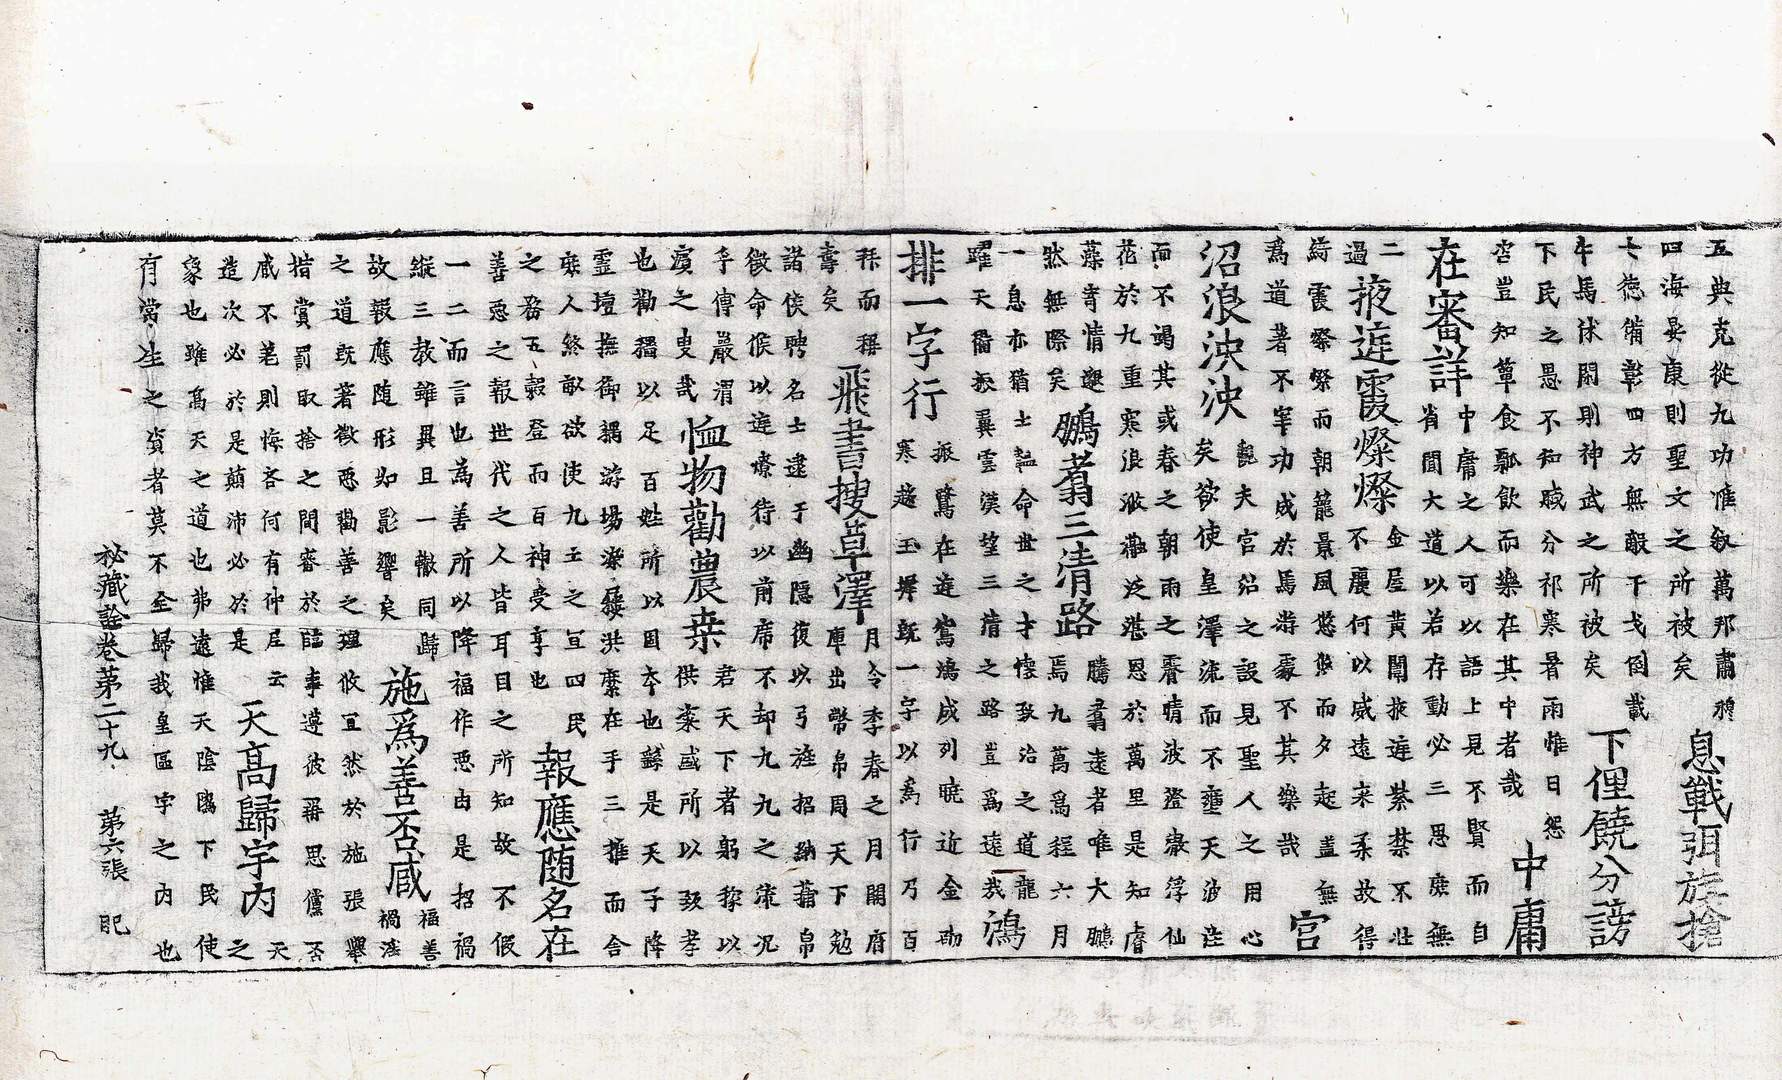 五典克從九功惟叙萬邦肅穆
四海晏康則聖文之所被矣
息戰弭旌搶
七德備彰四方無敵干戈倒載
牛馬休閑則神武之所被矣
下俚饒分謗
下民之愚不知感分祁寒暑雨惟日怨
咨豈知簞食瓢飲而樂在其中者哉
中庸
在審詳
中庸之人可以語上見不賢而自
省聞大道以若存動必三思庶無
二
過
掖遊霞燦燦
金屋黃閣掖遊紫禁不壯
不麗何以威遠來柔故得
綺霞祭祭而朝籠景風悠悠而夕起蓋無
為道著不宰功成於馬游豪不其樂哉
宮
沼浪泱泱
觀夫宮沼之設見聖人之用心
矣欲使皇澤流而不壅天波注
而不竭其或春之朝雨之霽晴波澄漱浮仙
花於九重寒浪漱灎泛湛恩於萬里是知睿
藻寄情邈
然無際矣
鵬翥三清路
騰翥遠者唯大鵬
焉九萬為程六月
一息亦猶士韞命世之才懷致治之道龍
躍天衢振翼雲漢望三清之路豈為遠哉
鴻
排一字行
振鷺在遊鴛鴻成列曉近金砌
寒趨玉墀既一字以為行乃百
拜而稱
壽矣
飛書搜草澤
月令季春之月開府
庫出幣帛周天下勉
諸侯聘名士逮于幽隱復以弓旌招納蒲帛
徵命候以庭燎待以前席不却九九之術况
乎傅巖渭
濱之叟哉
恤物勸農桒
君天下者躬稼以
供粢盛所以致孝
也勸穡以足百姓所以固本也繇是天子降
靈壇撫御耦游場染屨洪縻在手三推而舍
庶人終畝欲使九土之宜四民
之務五穀登而百神受享也
報應随名在
善惡之報世代之人皆耳目之所知故不假
一二而言也為善所以降福作惡由是招禍
縱三教雖異且一轍同歸
故報應随形如影響矣
施爲善否臧
福善
禍淫
之道既著徵惡勸善之理攸宜然於施張舉
措賞罰取捨之間審於臨事遵彼再思儻否
臧不差則悔吝何有仲尼云
造次必於是顛沛必於是
天高歸宇内
天
之
象也雖高天之道也弗遠惟天陰隲下民使
有常生之資者莫不全歸我皇區宇之内也
秘藏詮卷第二十九 第六張 昵